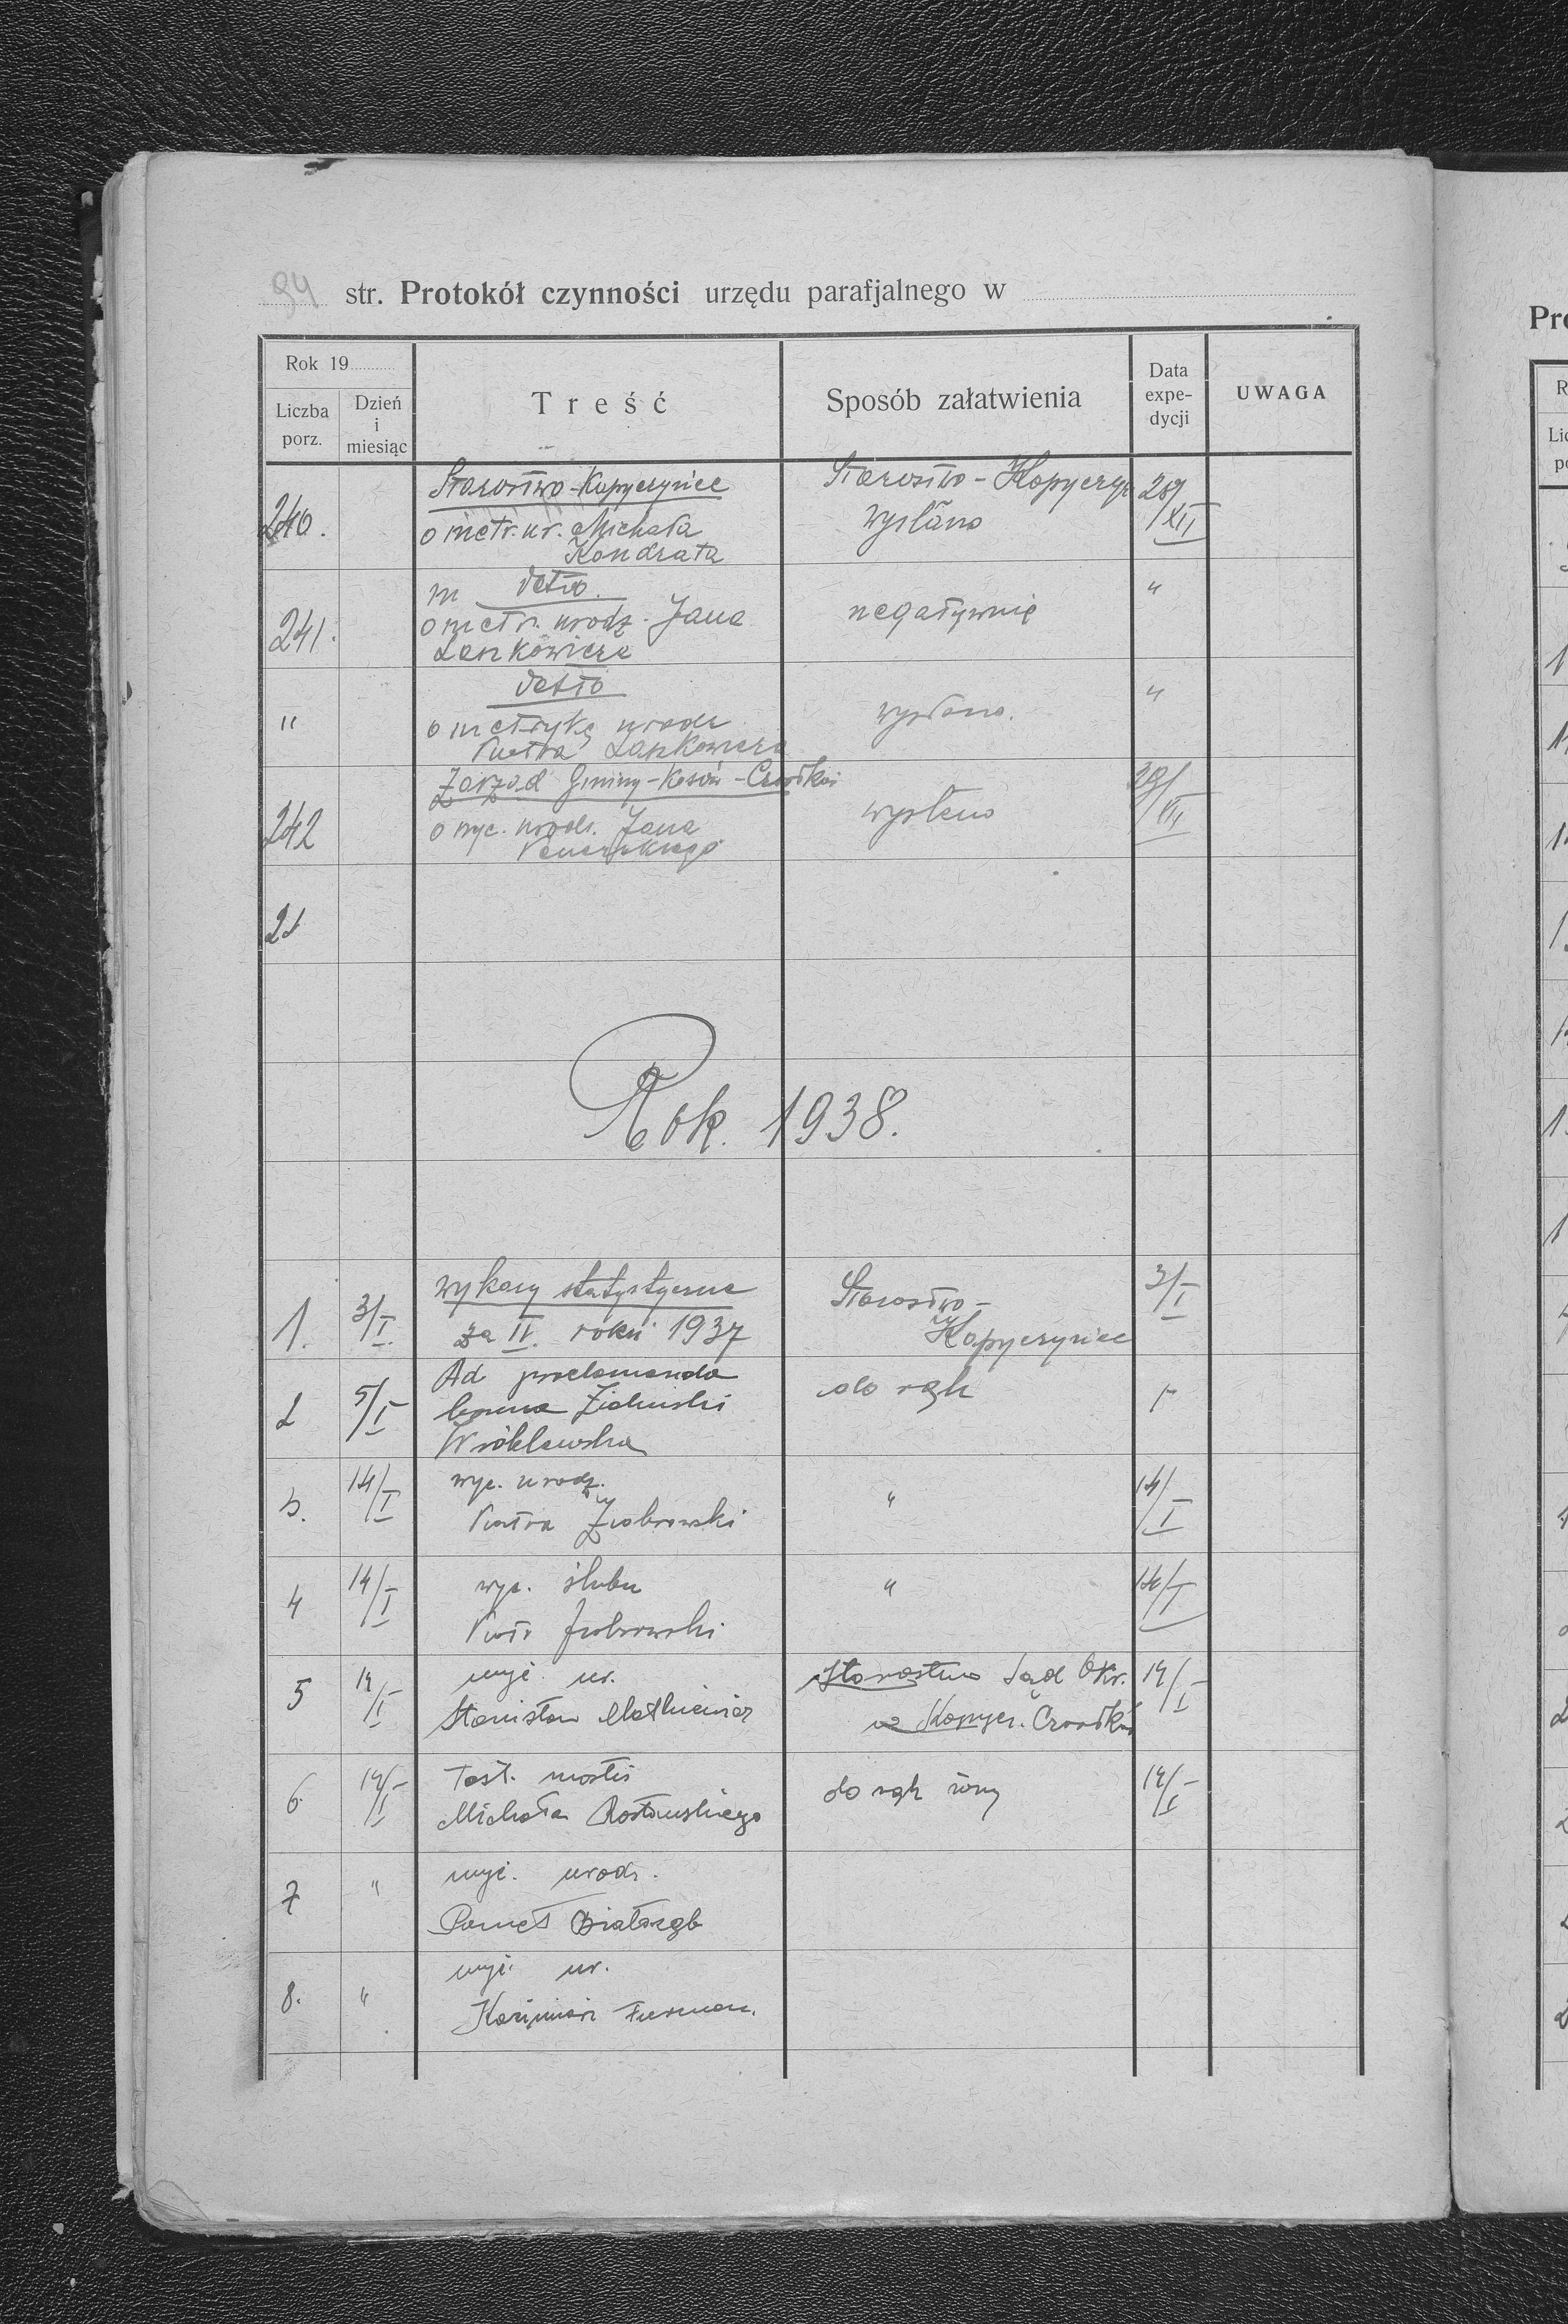 94 str. Protokół czynności urzędu parafjalnego w
Rok 19
Liczba porz.
Dzień i miesiąc
Treść
Sposób załatwienia
Data expe- dycji
UWAGA
240. Starostwo-Kopyczyńce Starostwo-Kopyczyń 29/XII
o metr. ur. Michała wysłano
Kondrata
detto.
241. o metr. urodz. Jana negatywnie "
Lankowicza
detto
" o metrykę urodz wysłano. "
Piotra Lankowicza
Zarząd Gminy - - Czortków 29/XII
242 o wyc. urodz. Jana wysłano
2
Rok 1938.
1. 3/I wykazy statystyczne Starostwo- 3/I
za IV. roku 1937 Kopyczyńce
2 5/I Ad proclamanda do rąk
Wróblewska
3. 14/I wyc. urodz. " 14/I
Piotra Ziobrowski
4 14/I wyc. ślubu " 14/I
Piotr Ziobrowski
5 14/I wyc. ur. Starostwo Sąd Okr. 14/I
Stanisław w Kopycz. Czortków
6. 14/I Test. mortis do rąk żony 14/I
Michała
7 " wyc. urodz.
Paweł Białogłb
8. " wyc. ur.
Kazimierz Furman.
Pro